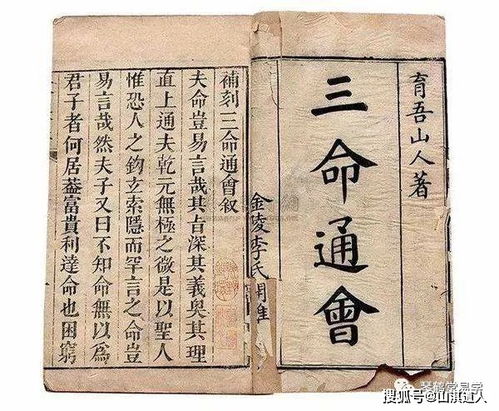 育吾山人著
三命通會
金陵李氏
補刻三命通會叙
夫命豈易言哉其旨深其義奥其理
直上通夫乾元無極之微是以聖人
惟恐人之鈎玄索隠而罕言之命豈
易言哉然夫子又曰不知命無以爲
君子者何居葢富貴利達命也困窮
琴鶴堂易學
搜狐号@山旗道人